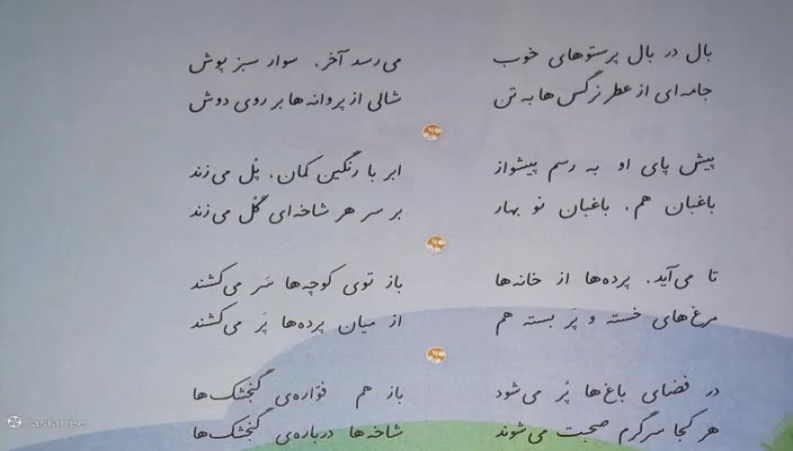 بال در بال پرستوهای خوب می‌رسد آخر، سوار سبز پوش
جامه‌ای از عطر نرگس‌ها به تن شالی از پروانه‌ها بر روی دوش
پیش پای او به رسم پیشواز ابر با رنگین کمان، پُل می‌زند
باغبان هم، باغبان نو بهار بر سر هر شاخه‌ای گُل می‌زند
تا می‌آید، پرده‌ها از خانه‌ها باز توی کوچه‌ها سَر می‌کشند
مرغ‌های خسته و پَر بسته هم از میان پرده‌ها پَر می‌کشند
در فضای باغ‌ها پُر می‌شود باز هم فوّاره‌ی گنجشک‌ها
هر کجا سرگرم صحبت می‌شوند شاخه‌ها درباره‌ی گنجشک‌ها